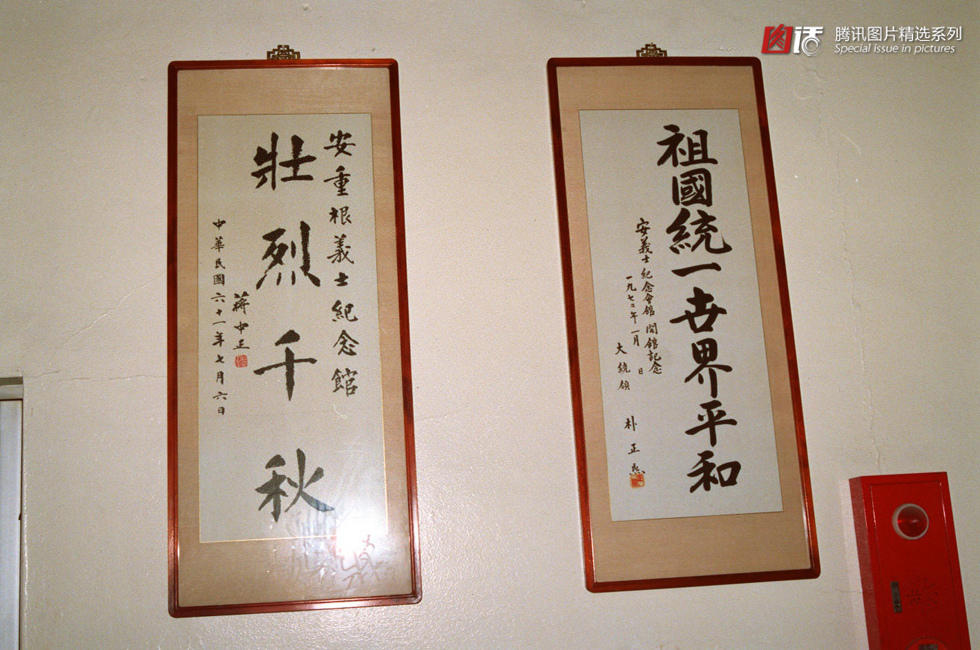 图话
腾讯图片精选系列
Special issue in pictures
安重根義士紀念館
壯烈千秋
蔣中正
中華民國六十一年七月六日
祖國統一世界平和
安義士紀念會館 開館記念
一九七二年一月 日
大統領 朴正熙